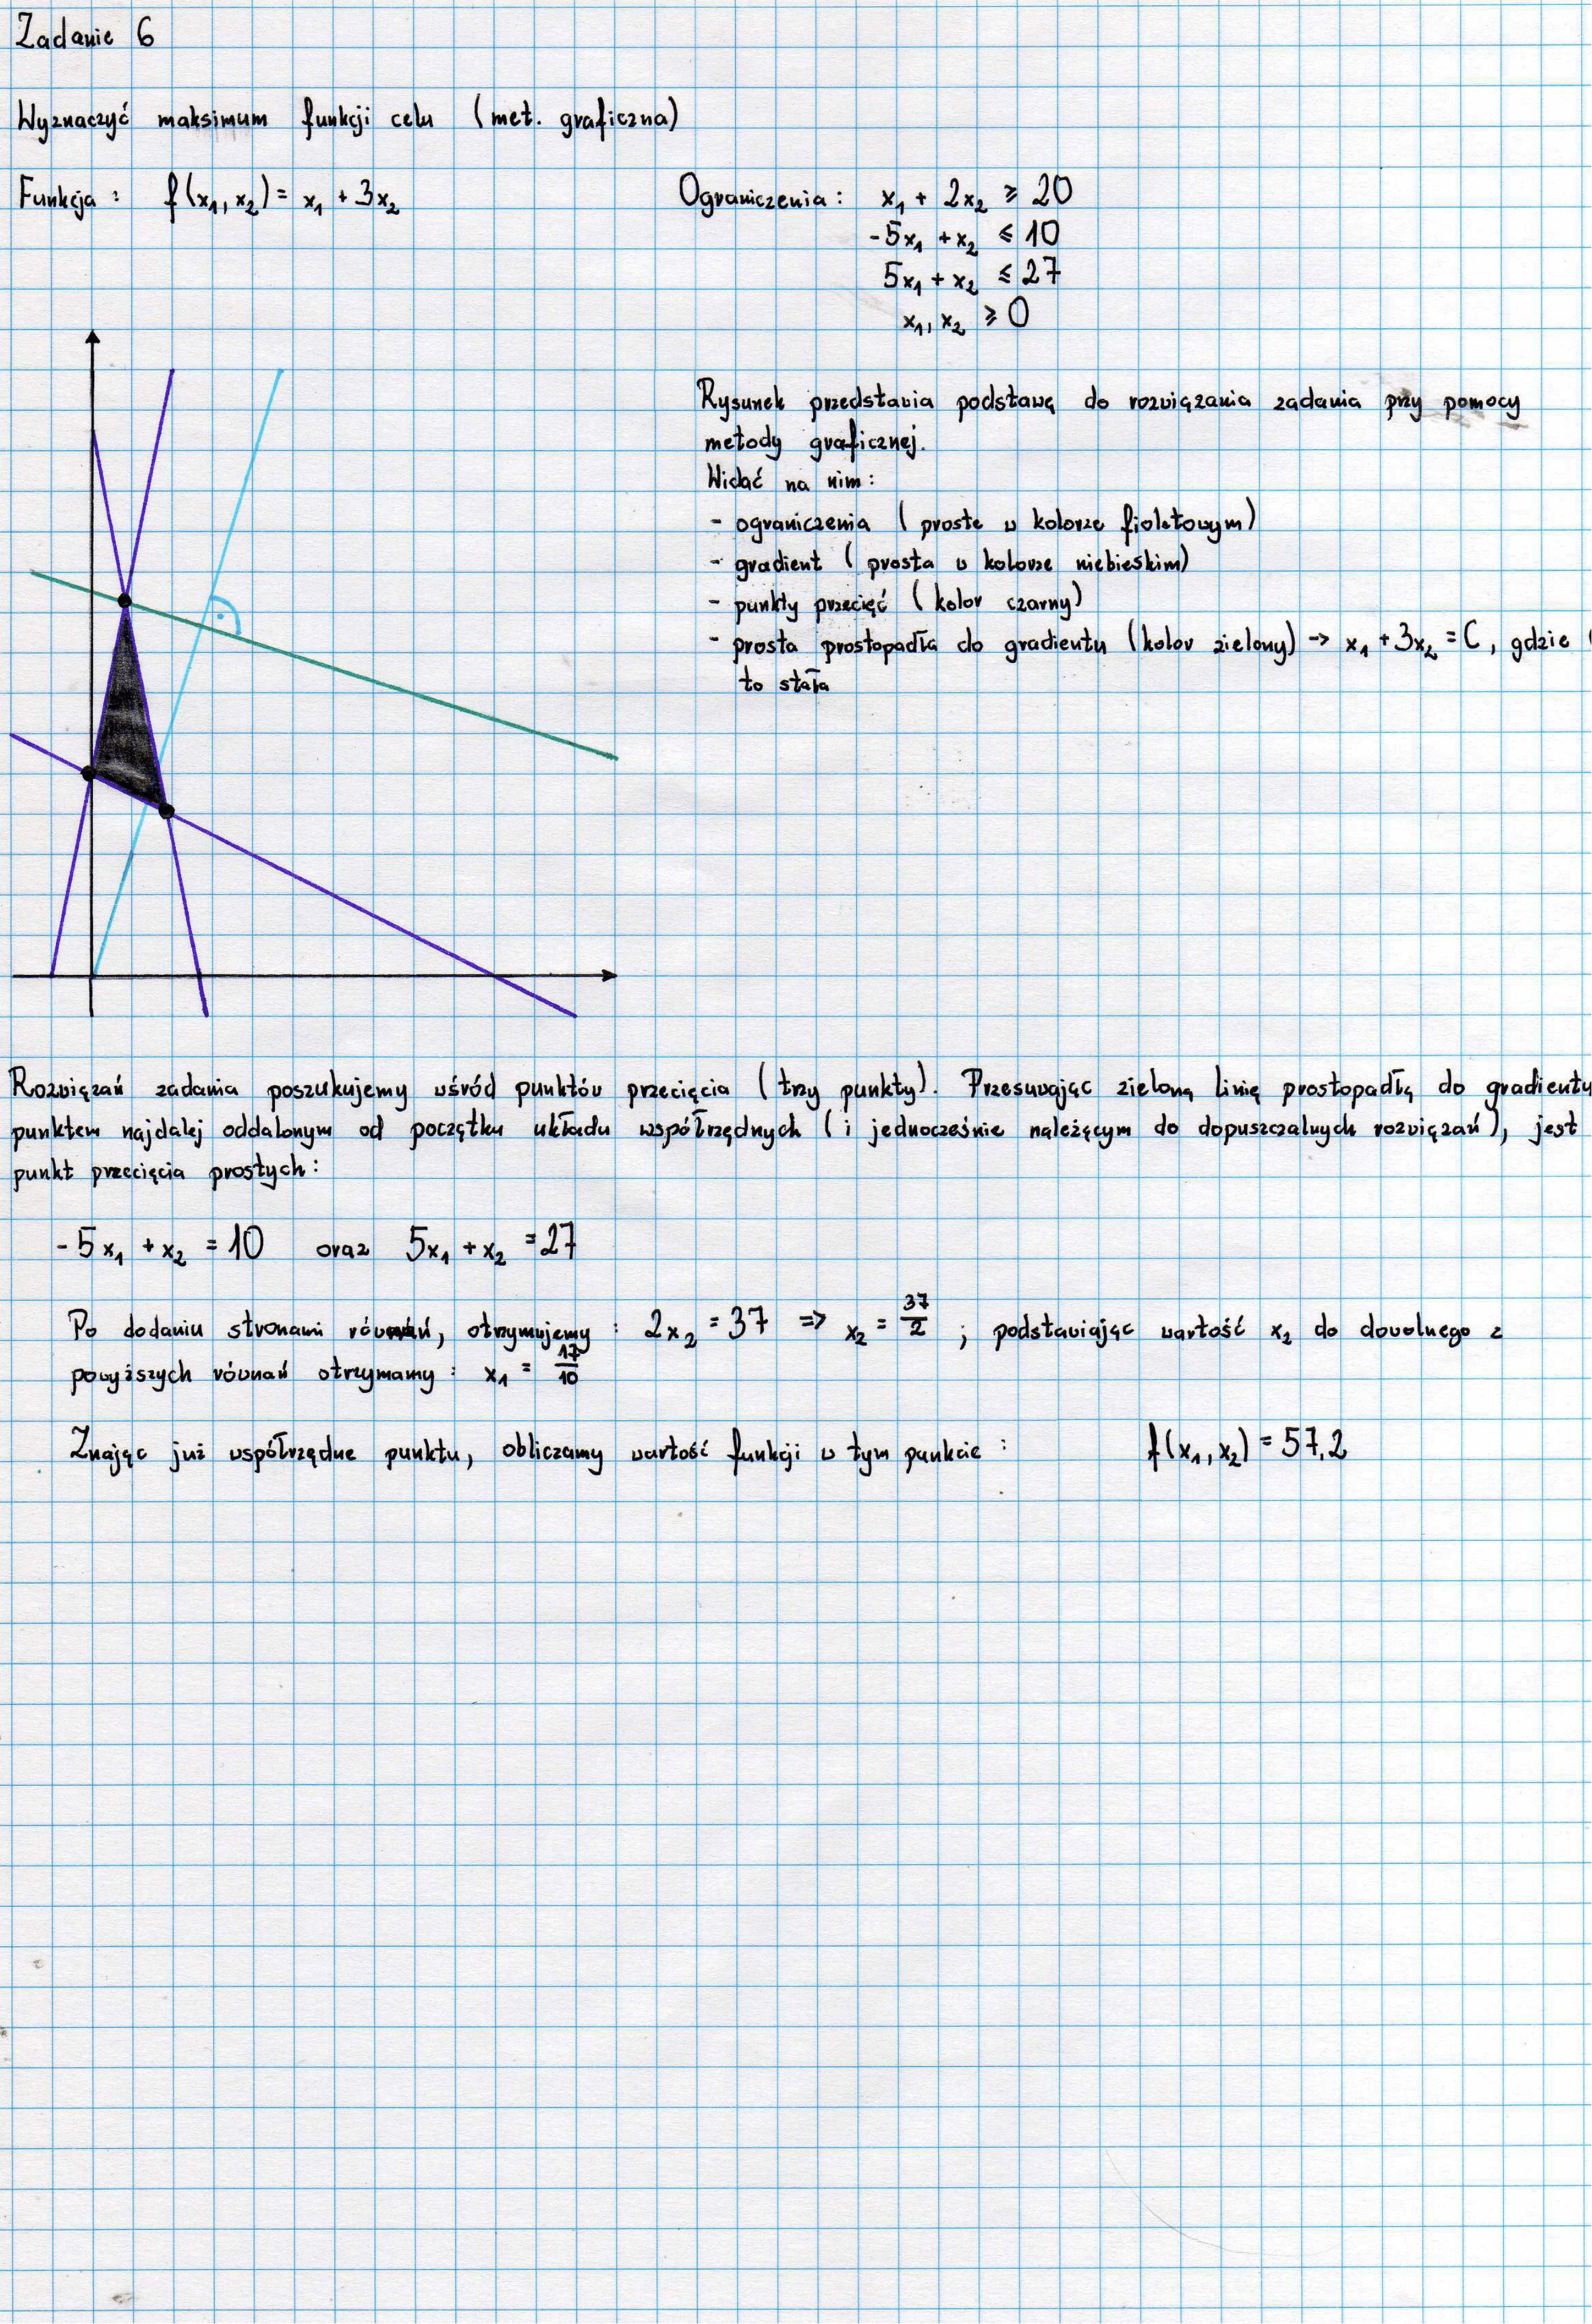 Zadanie 6
Wyznaczyć maksimum funkcji celu (met. graficzna)
Funkcja: f(x₁, x₂) = x₁ + 3x₂
Ograniczenia: x₁ + 2x₂ ≥ 20
-5x₁ + x₂ ≤ 10
5x₁ + x₂ ≤ 27
x₁, x₂ ≥ 0
Rysunek przedstawia podstawę do rozwiązania zadania przy pomocy
metody graficznej.
Widać na nim:
- ograniczenia (proste w kolorze fioletowym)
- gradient (prosta w kolorze niebieskim)
- punkty przecięć (kolor czarny)
- prosta prostopadła do gradientu (kolor zielony) -> x₁ + 3x₂ = C, gdzie
to stała
Rozwiązań zadania poszukujemy wśród punktów przecięcia (trzy punkty). Przesuwając zieloną linię prostopadłą do gradientu
punktem najdalej oddalonym od początku układu współrzędnych (i jednocześnie należącym do dopuszczalnych rozwiązań), jest
punkt przecięcia prostych:
-5x₁ + x₂ = 10 oraz 5x₁ + x₂ = 27
Po dodaniu stronami równań, otrzymujemy: 2x₂ = 37 => x₂ = 37/2; podstawiając wartość x₂ do dowolnego z
powyższych równań otrzymamy: x₁ = 17/10
Znając już współrzędne punktu, obliczamy wartość funkcji w tym punkcie: f(x₁, x₂) = 57,2